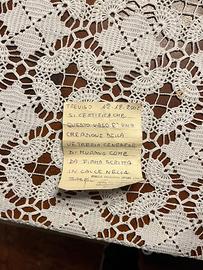 TREVISO 12.12.2002
SI CERTIFICA CHE
QUESTO VASO E' UNA
CREAZIONE DELLA
VETRERIA CENEDESE
DI MURANO COME
DA FIRMA SCRITTA
IN CALCE NELLA